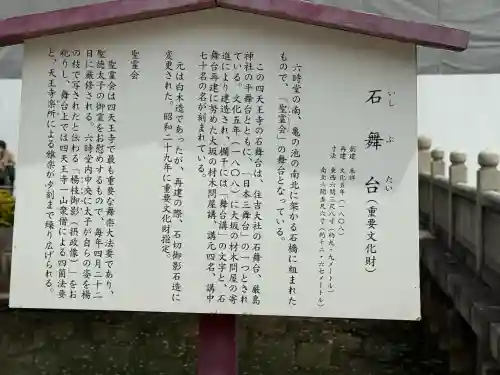 石舞台(重要文化財)
いし ぶ たい
創建 未詳
再建 文化五年(一八〇八)
寸法 東西六間三尺八寸(約九・九メートル)
南北六間五尺六寸(約十二・六七メートル)
六時堂の南、亀の池の南北に架かる石橋に組まれた
もので、「聖霊会」の舞台となっている。
この四天王寺の石舞台は、住吉大社の石舞台、厳島
神社の平舞台とともに、「日本三舞台」の一つとされ
ている。文化五年(一八〇八)に大坂の材木問屋の寄
進により建造され、欄干には「舞台講」の文字と、石
舞台再建に努めた大坂の材木問屋講、講元四名、講中
七十名の名が刻まれている。
元は白木造であったが、再建の際、石切御影石造に
変更された。昭和二十九年に重要文化財指定。
聖霊会
聖霊会は四天王寺で最も重要な舞楽大法要であり、
聖徳太子の御霊をお慰めするもので、毎年四月二十二
日に厳修される。六時堂内中央に太子が自らの姿を楊
の枝で写されたと伝わる「楊枝御影・摂政像」」をお
祀りし、舞台上では四天王寺一山衆僧による四箇法要
と、天王寺楽所による雅楽が夕刻まで繰り広げられる。